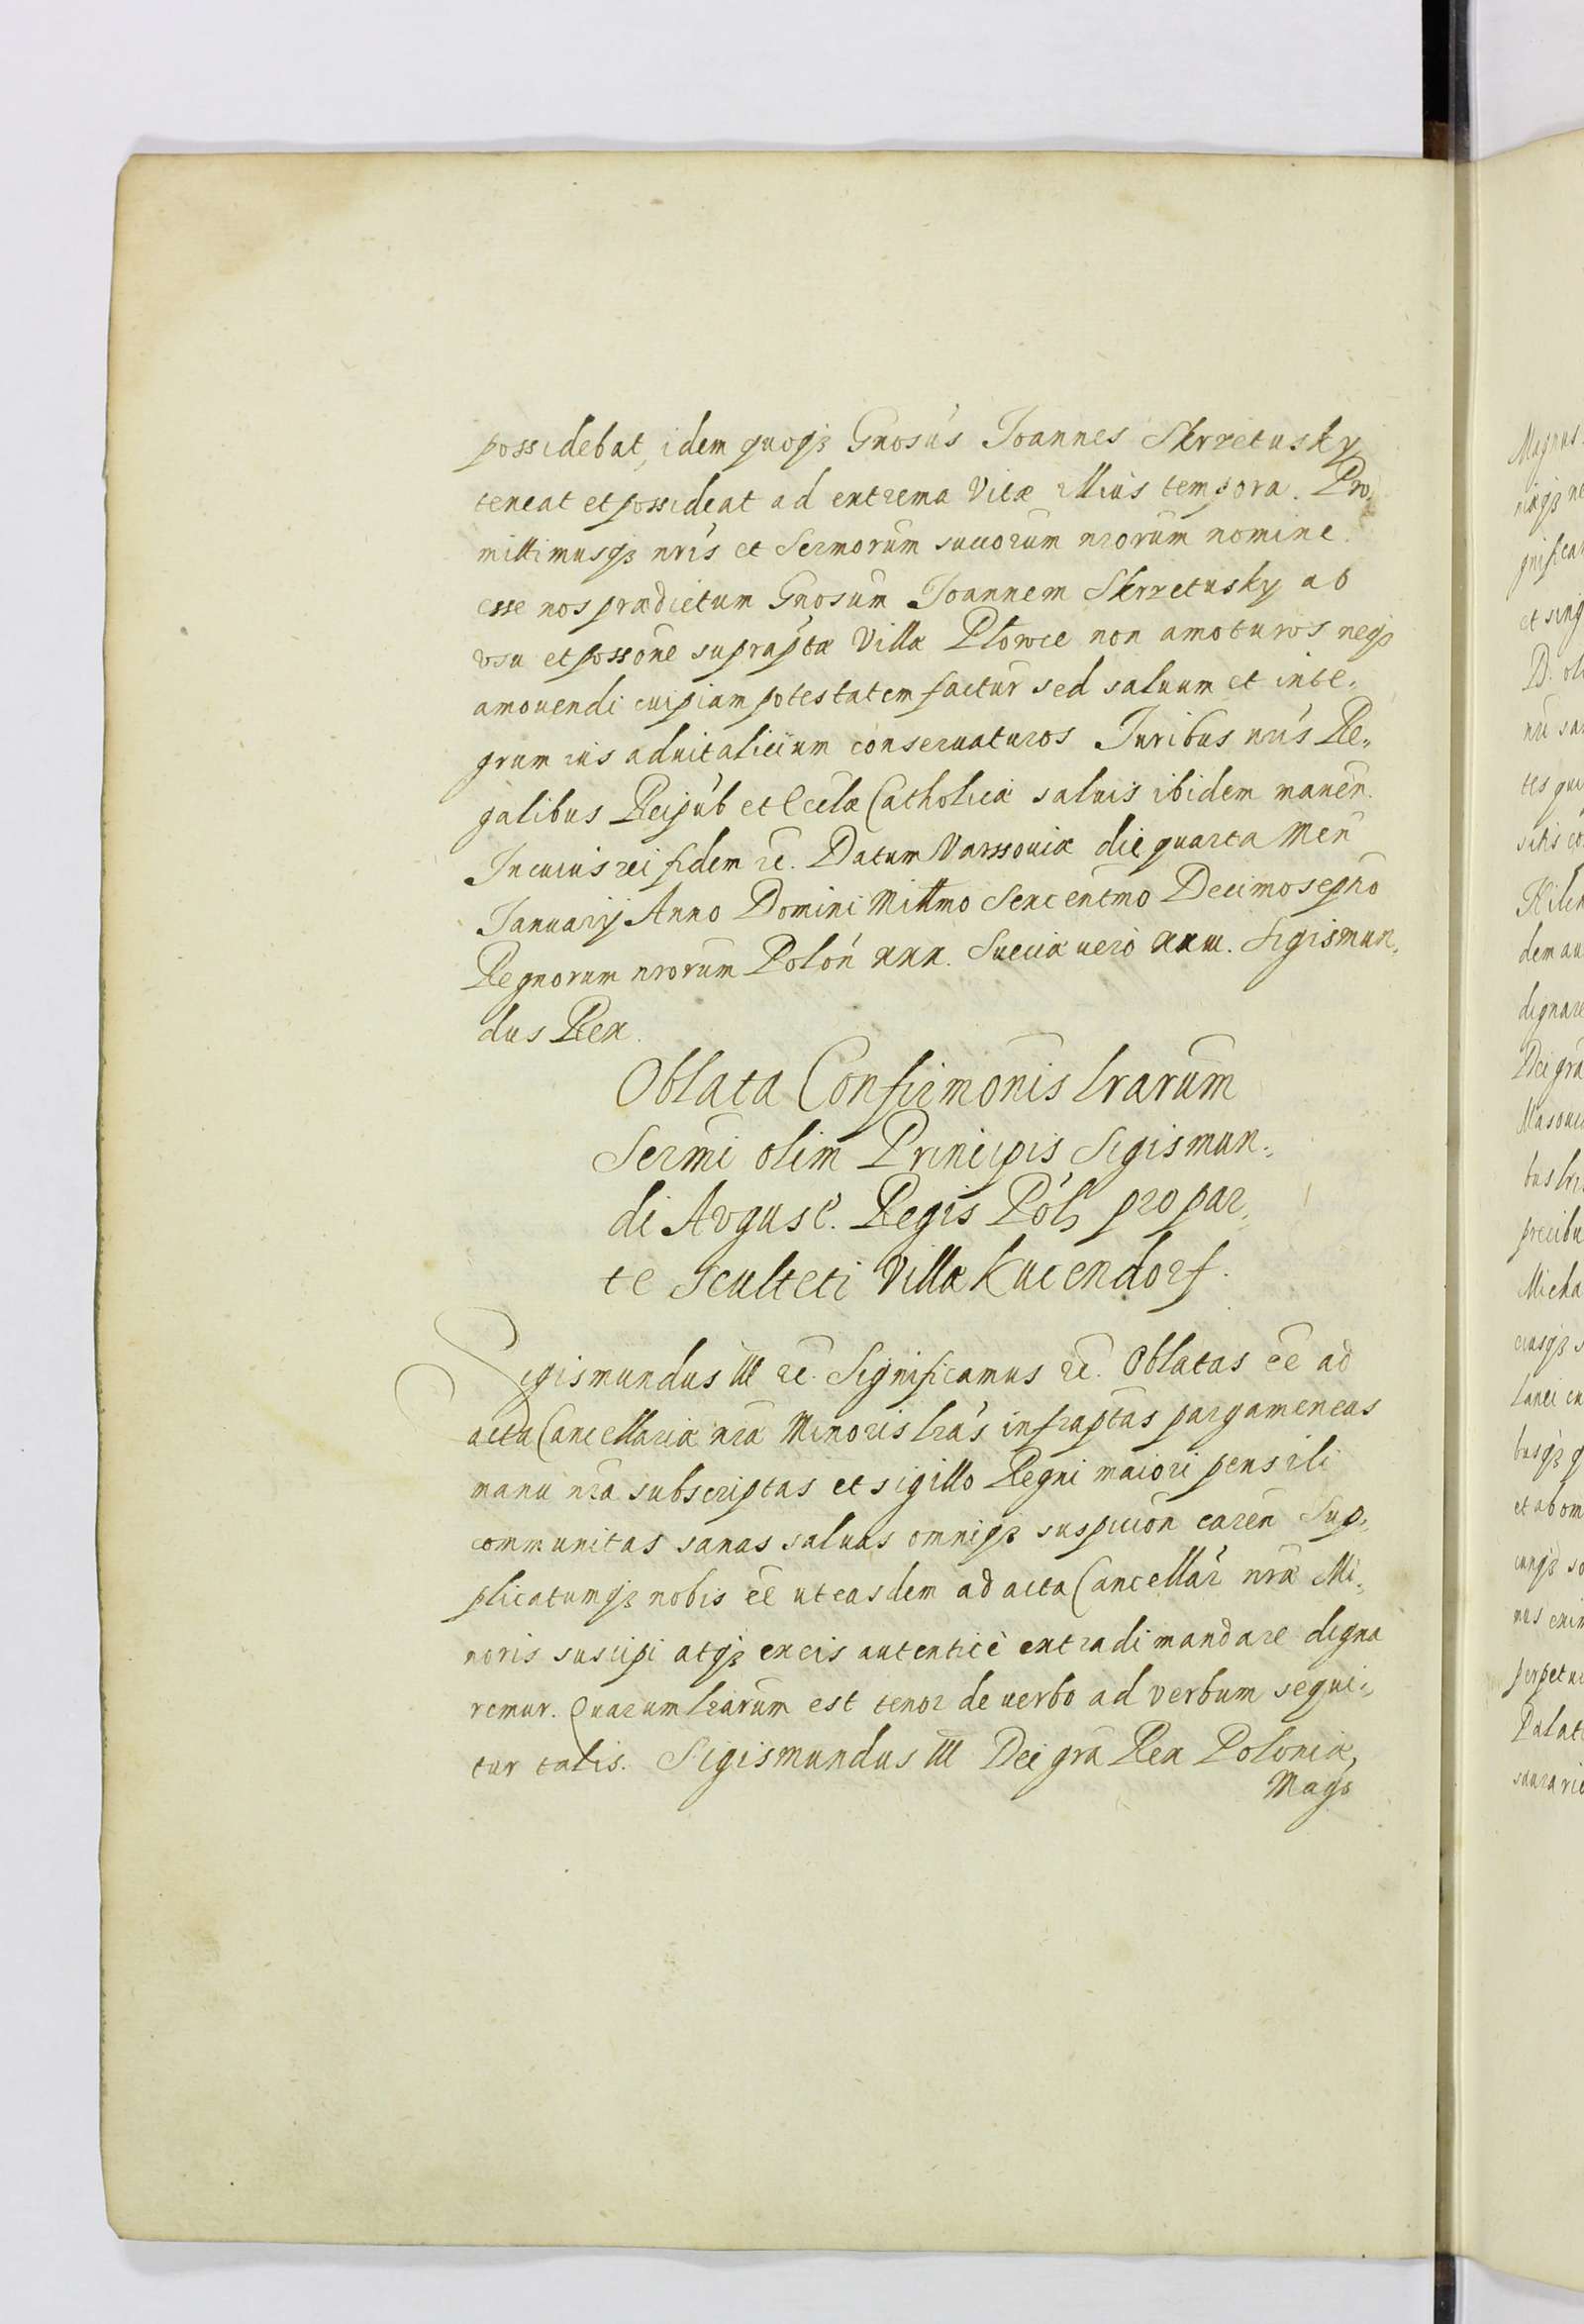 possidebat, idem quoqꝫ Gnosus Joannes Skrzetusky
teneat et possideat ad extrema Vitæ illius tempora. Pro,
mittimusqꝫ nris et Sermorum succorum nrorum nomine
esse nos prædictum Gnosum Joannem Skrzetusky ab
usu et possone suprapta Villæ Plowce non amoturos neqꝫ
amouendi cuipiam potestatem factur sed saluum et inte,
grum ius aduitalicium conseruaturos Juribus nris Re,
galibus Reipub et Eccla Catholicæ saluis ibidem manen.
In cuius rei fidem zc. Datum Varssouiæ die quarta Men
Januarij Anno Domini Millmo Sexcentmo Decimoseptio
Regnorum nrorum Polon xxx. Sueciæ uero xxiii. Sigismun,
dus Rex.
Oblata Confirmonis lrarum
Sermi olim Principis Sigismun,
di August. Regis Pol, pro par,
te Sculteti Villæ Kucendorf.
Sigismundus III zc. Significamus zc. Oblatas ee ad
acta Cancellariæ nra Minoris lras infraptas pargameneas
manu nra subscriptas et sigillo Regni maiori pensili
communitas sanas saluas omniqꝫ suspicion caren Sup,
plicatumqꝫ nobis ee ut easdem ad acta Cancellar nræ Mi,
noris suscipi atqꝫ ex eis autenticè extradi mandare digna
remur. Quarum lrarum est tenor de uerbo ad verbum sequi,
tur talis. Sigismundus III Dei gra Rex Poloniæ,
Mags
Magnus
gnifica
et sing
D. oli
nu sa
tes qui
dem au
dignare
Dei gra
Masoui
bus lris
precibu
Micha
Lanei
et ab om
perpetu
Palati